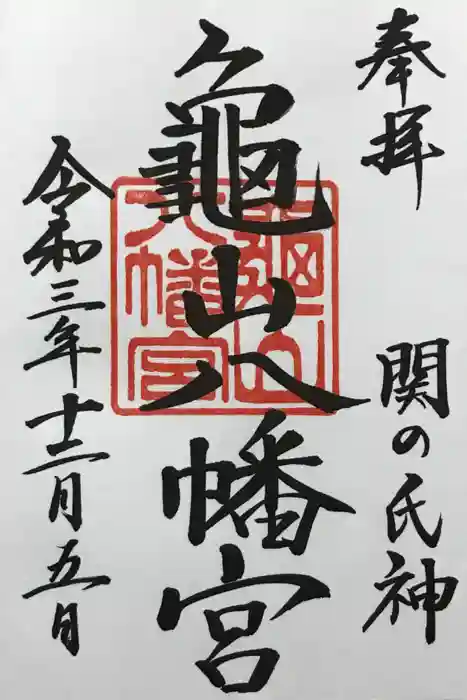 奉拝
関の氏神
龜山八幡宮
龜山八幡宮
令和三年十二月五日